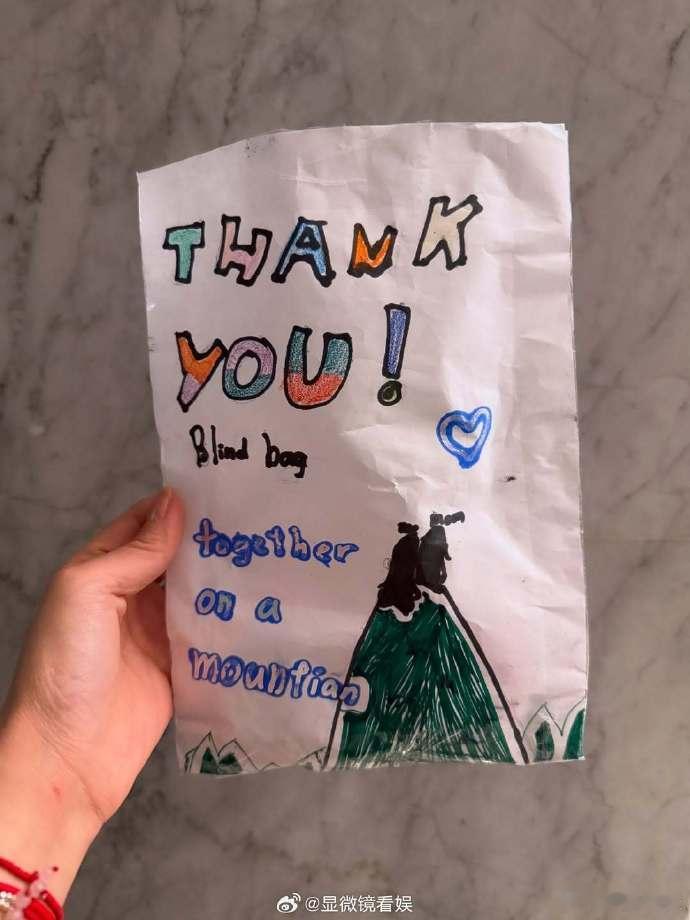 THANK
YOU!
Blind bag
together
on a
mountian
me mom
@显微镜看娱